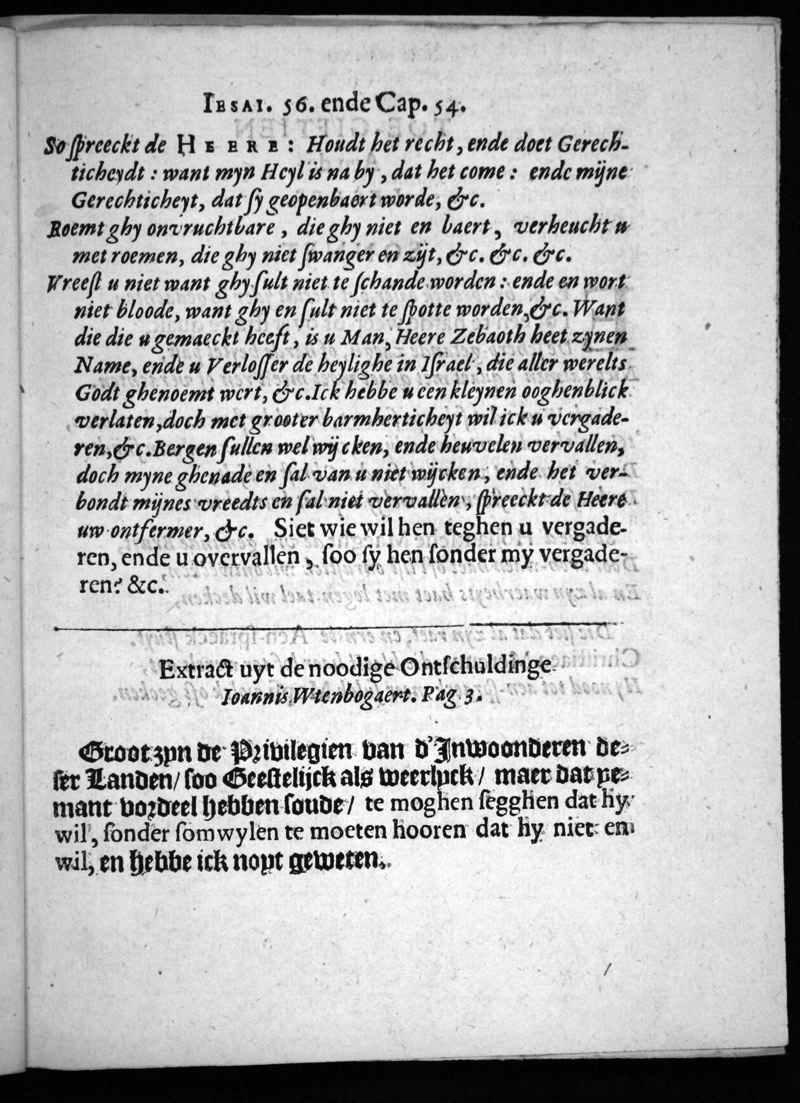 IESAI. 56. ende Cap. 54.
So ſpreeckt de HEERE: Houdt het recht, ende doet Gerech-
ticheydt: want myn Heyl is na by, dat het come: ende mijne
Gerechticheyt, dat ſy geopenbaert worde, &c.
Roemt ghy onvruchtbare, die ghy niet en baert, verheucht u
met roemen, die ghy niet ſwanger en zijt, &c. &c. &c.
Vreeſt u niet want ghy ſult niet te ſchande worden: ende en wort
niet bloode, want ghy en ſult niet te ſpotte worden, &c. Want
die die u gemaeckt heeft, is u Man, Heere Zebaoth heet zynen
Name, ende u Verloſſer de heylighe in Iſrael, die aller werelts
Godt ghenoemt wert, &c. Ick hebbe u een kleynen ooghenblick
verlaten, doch met grooter barmherticheyt wil ick u vergade-
ren, &c. Bergen ſullen wel wijcken, ende heuvelen vervallen,
doch myne ghenade en ſal van u niet wijcken, ende het ver-
bondt mijnes vreedts en ſal niet vervallen, ſpreeckt de Heere
uw ontfermer, &c. Siet wie wil hen teghen u vergade-
ren, ende u overvallen, ſoo ſy hen ſonder my vergade-
ren? &c.
Extract uyt de noodige Ontſchuldinge
Ioannis Wtenbogaert. Pag 3.
Groot zyn de Privilegien van d'Inwoonderen de-
ſer Landen/ ſoo Geeſtelijck als weerlyck/ maer dat ye-
mant voordeel hebben ſoude/ te moghen ſegghen dat hy
wil, ſonder ſomwylen te moeten hooren dat hy niet en
wil, en hebbe ick noyt geweten.